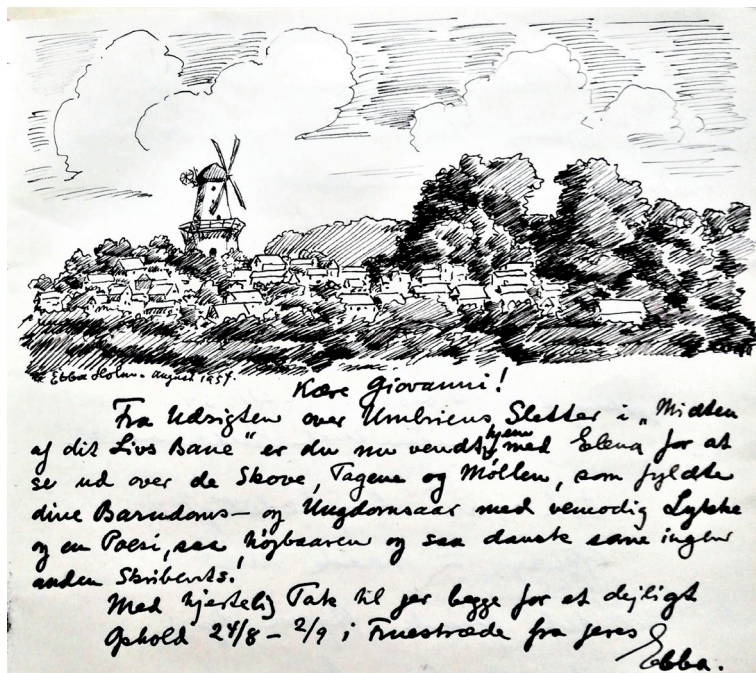 Ebba Holm - August 1954.
Kære Giovanni!
Fra Udsigten over Umbriens Sletter i „Midten
af dit Livs Bane" er du nu vendt hjem med Elena for at
se ud over de Skove, Tagene og Møllen, som fyldte
dine Barndoms- og Ungdomsaar med vemodig Lykke
og en Poesi, saa højbaaren og saa dansk som ingen
anden Skribents!
Med hjertelig Tak til jer begge for et dejligt
Ophold 24/8 - 2/9 i Fruestræde fra jeres
Ebba.